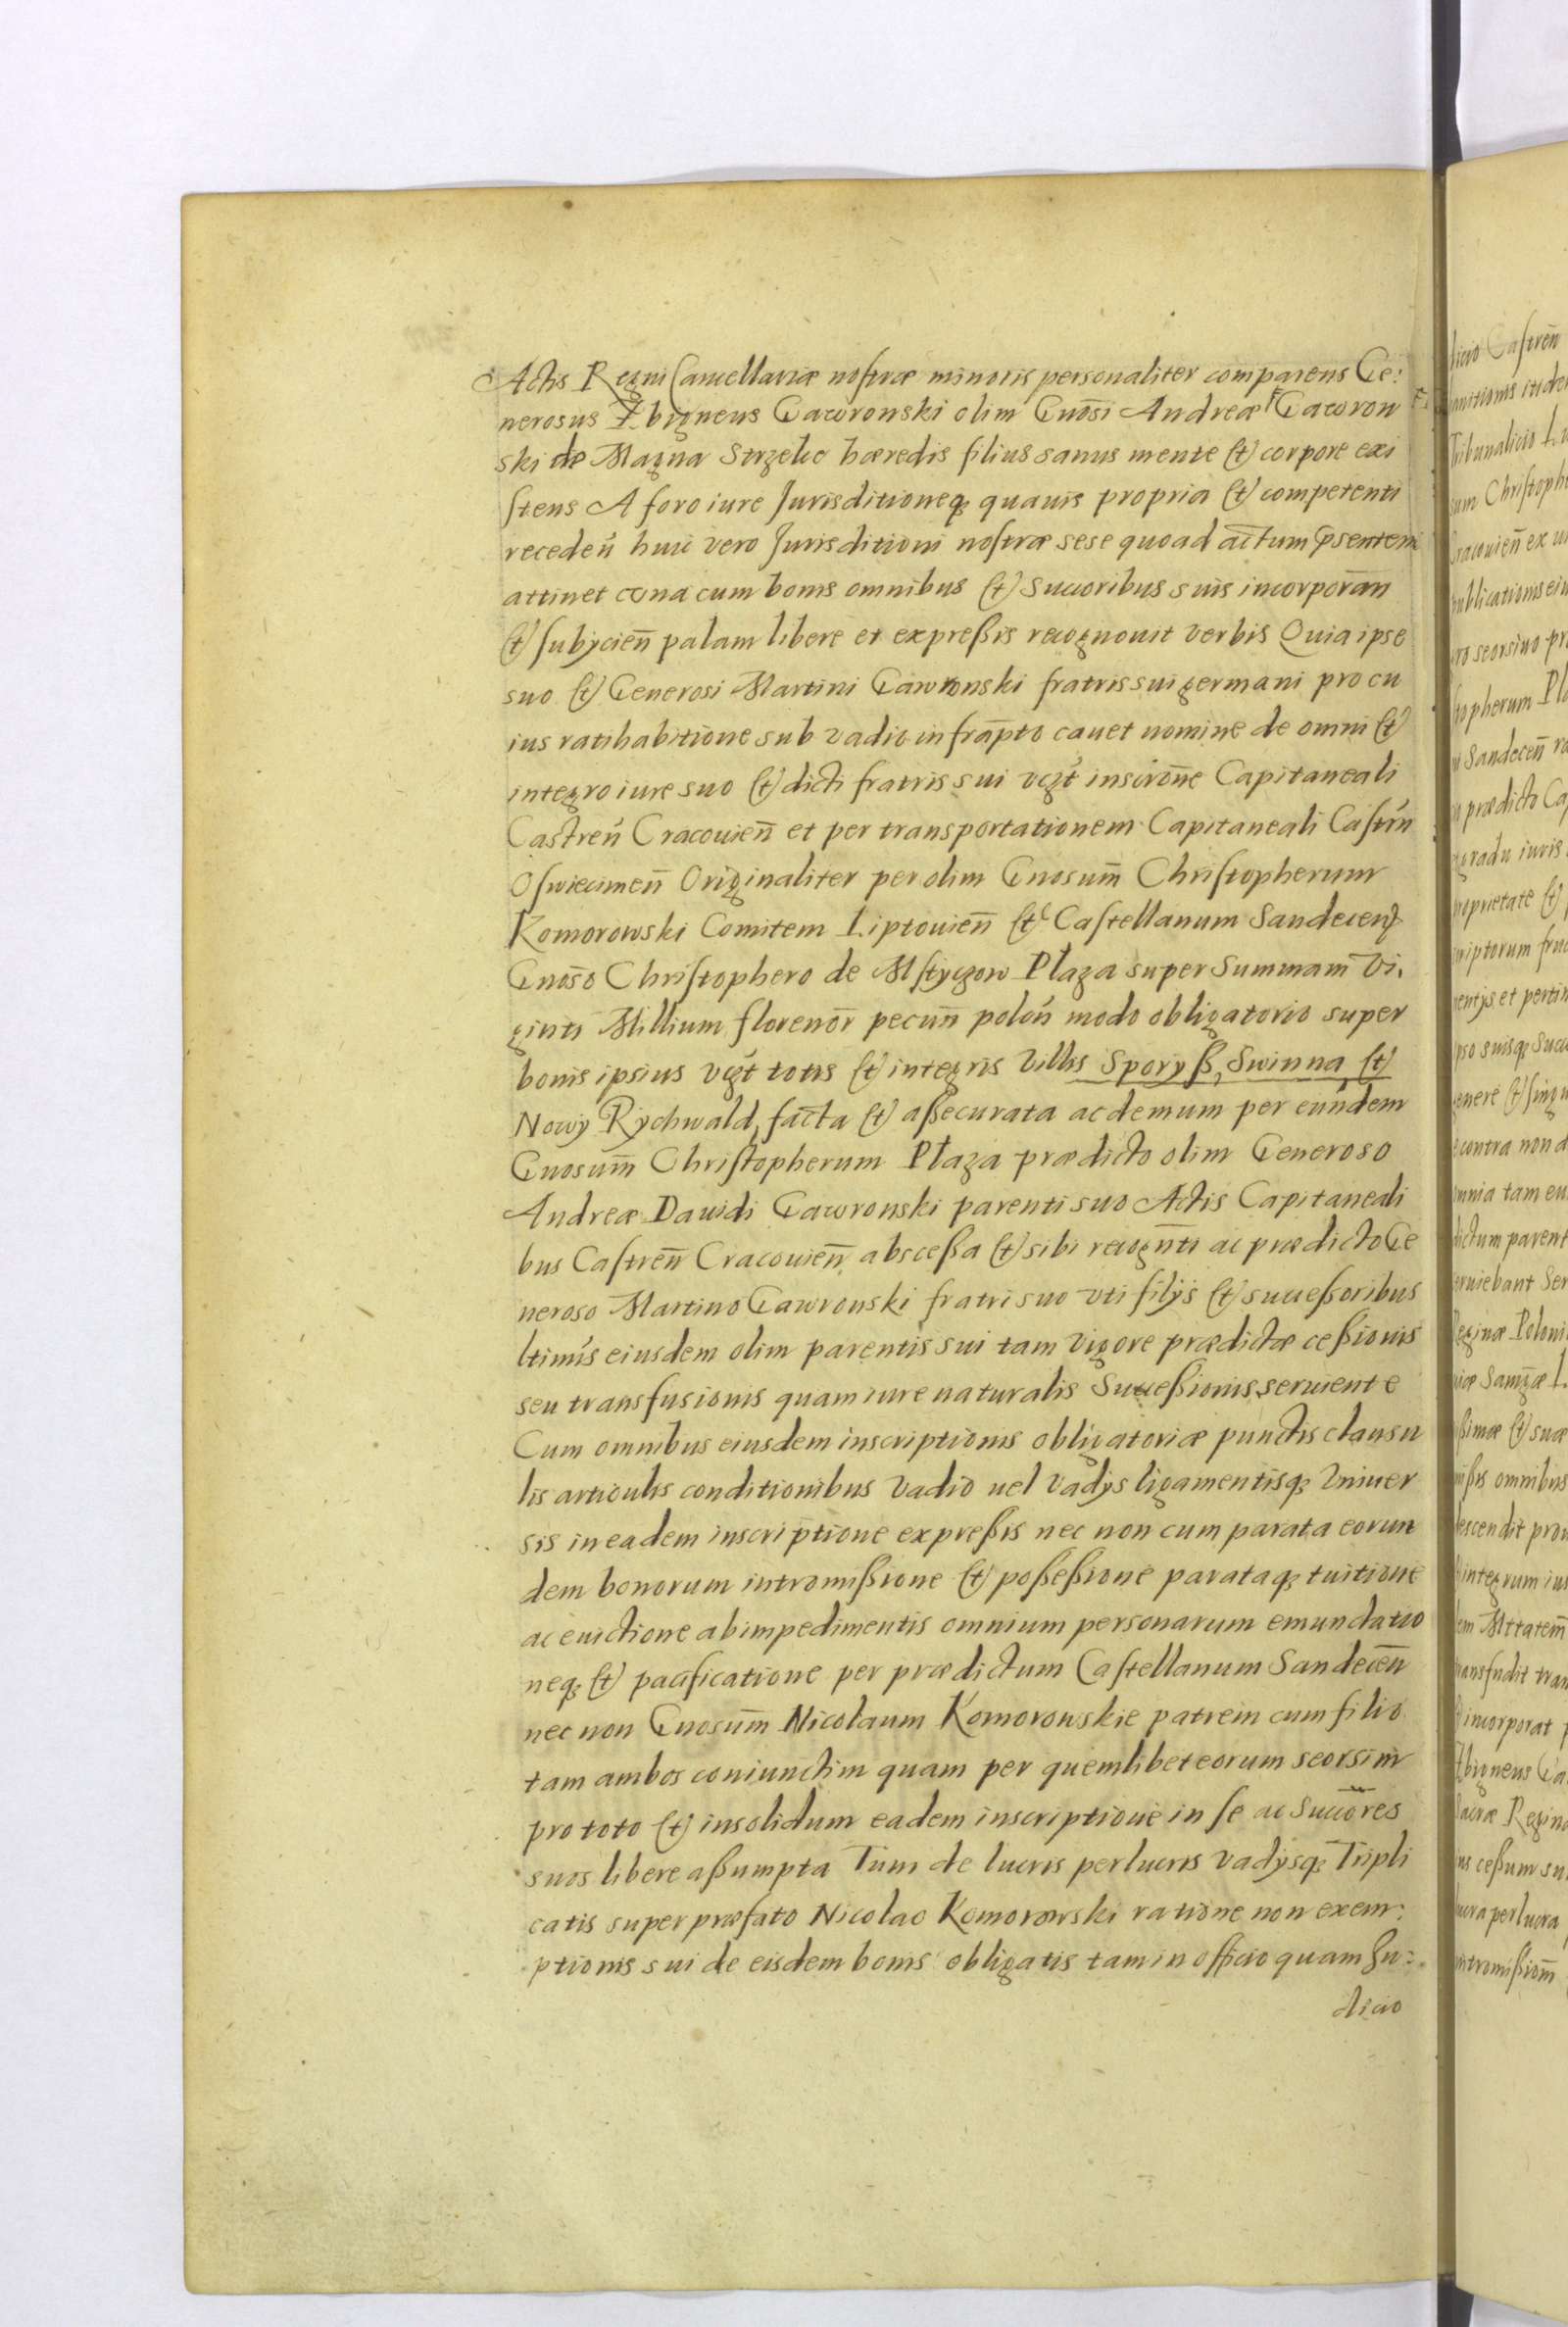 Actis Regni Cancellariæ nostræ minoris personaliter comparens Ge:
nerosus Zbigneus Gawronski olim Gnōsi Andreæ Gawron
ski de Magna Strzelce hæredis filius sanus mente et corpore exi
stens A foro iure Jurisditioneq; quauis propria et competenti
receden̄ huic vero Jurisditioni nostræ sese quoad actum p̄sentem
attinet vna cum bonis omnibus et Succoribus suis incorporan̄
et subycien̄ palam libere et expreßis recognouit verbis Quia ipse
suo et Generosi Martini Gawronski fratris sui germani pro cu
ius ratihabitione sub vadio infrap̄to cauet nomine de omni et
integro iure suo et dicti fratris sui vgt̄ inscirōne Capitaneali
Castren̄ Cracouien̄ et per transportationem Capitaneali Castrn̄
Oswiecimen̄ Originaliter per olim Gnosum̄ Christopherum
Komorowski Comitem Liptouien̄ etc Castellanum Sandecen̄
Gnōso Christophero de Mstyczow Płaza super Summam Vi,
ginti Millium florenor̄ pecun̄ polon̄ modo obligatorio super
bonis ipsius vgt̄ totis et integris Villis Sporyß, Swinna et
Nowy Rychwald, facta et aßecurata ac demum per eundem
Gnosum̄ Christopherum Płaza prædicto olim Generoso
Andreæ Dauidi Gawronski parenti suo Actis Capitaneali
bus Castren̄ Cracouien̄ absceßa et sibi recogn̄ti ac prædicto Ge
neroso Martino Gawronski fratri suo vti filijs et succeßoribus
ltimis eiusdem olim parentis sui tam vigore prædictæ ceßionis
seu transfusionis quam iure naturalis Succeßionis seruiente
Cum omnibus eiusdem inscriptionis obligatoriæ punctis clausu
lis articulis conditionibus vadio uel vadys ligamentisq; vniuer
sis in eadem inscriptione expreßis nec non cum parata eorun
dem bonorum intromißione et poßeßione parataq; tuitione
ac euictione ab impedimentis omnium personarum emundatio
neq; et pacificatione per prædictum Castellanum Sandecen̄
nec non Gnosum̄ Nicolaum Komorowskie patrem cum filio
tam ambos coniunctim quam per quemlibet eorum seorsim
pro toto et insolidum eadem inscriptione in se ac Succōres
suos libere aßumpta Tum de lucris perlucris vadysq; Tripli
catis super præfato Nicolao Komorowski ratione non exem:
ptionis sui de eisdem bonis obligatis tam in officio quam Ju:
dicio